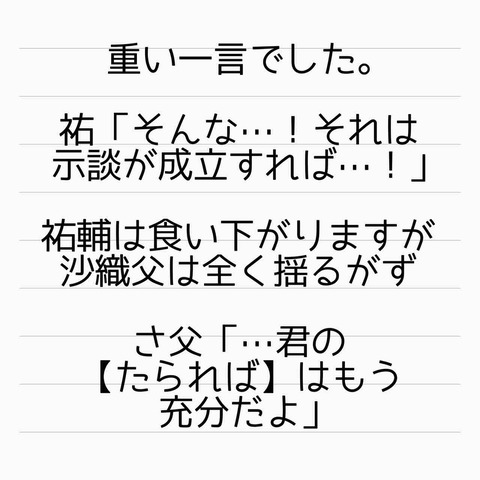 重い一言でした。
祐「そんな…！それは
示談が成立すれば…！」
祐輔は食い下がりますが
沙織父は全く揺るがず
さ父「…君の
【たられば】はもう
充分だよ」